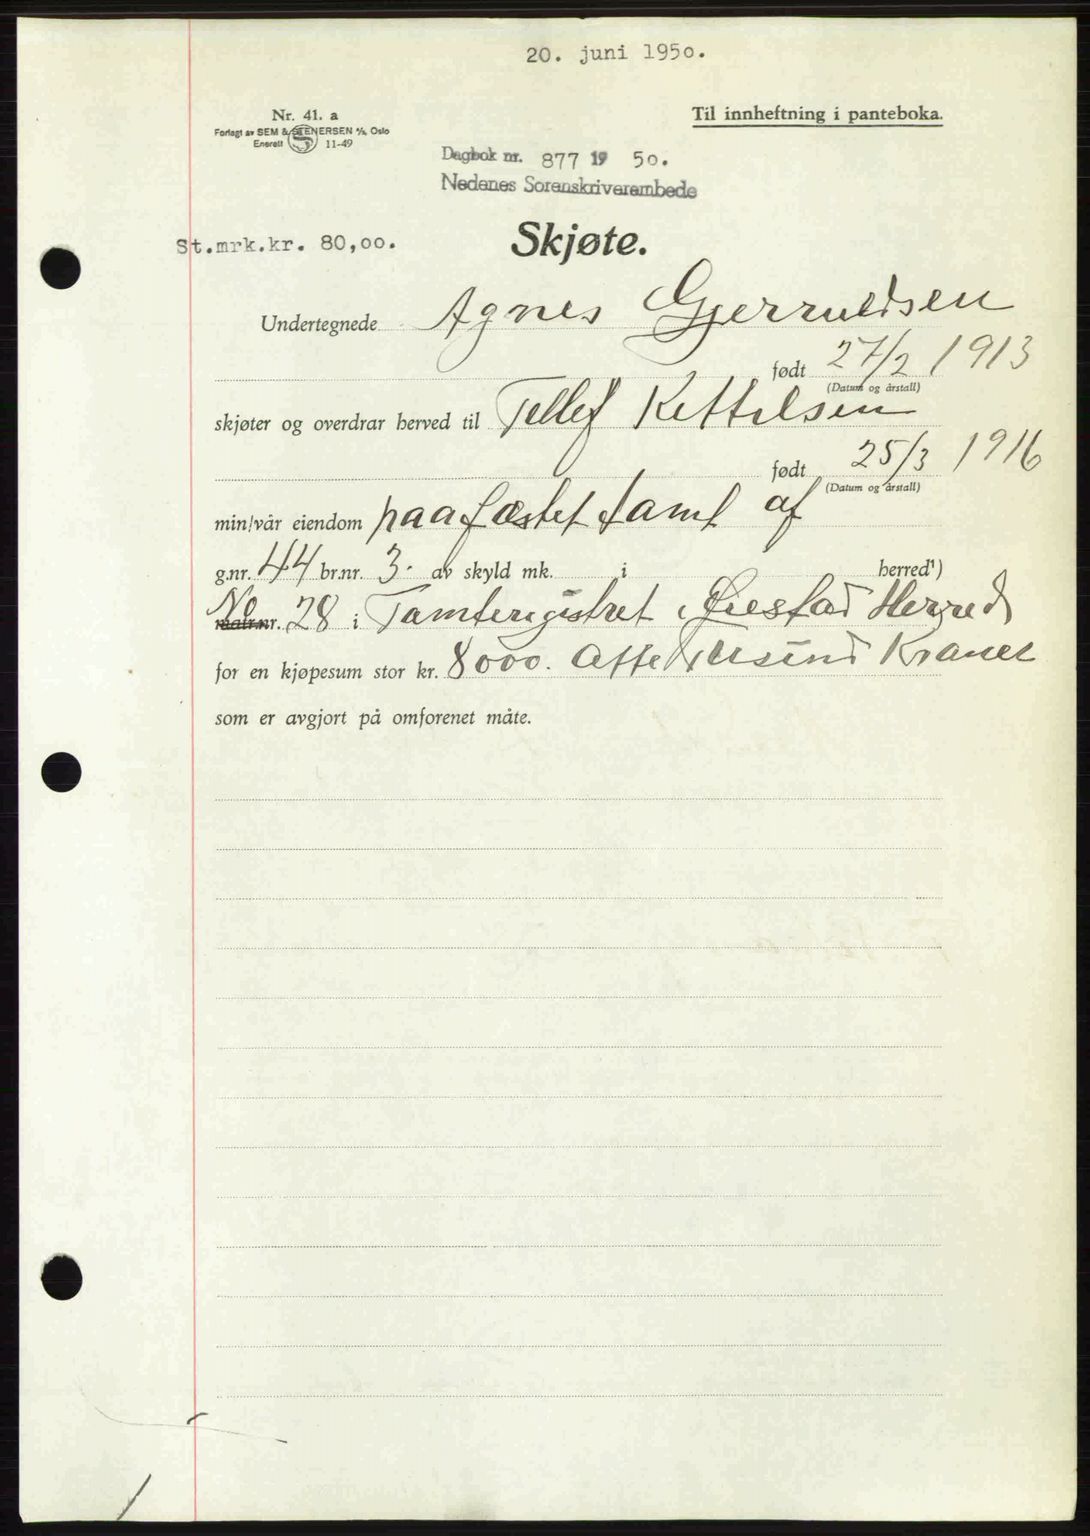 20. juni 1950.
Nr. 41. a
Forlagt av SEM & STENERSEN A/S, Oslo
Enerett S 11-49
Til innheftning i panteboka.
Dagbok nr. 877 19 50.
Nedenes Sorenskriverembede
St.mrk.kr. 80,00.
Skjøte.
Undertegnede Agnes Gjerruldsen
født 27/2 1913
(Datum og årstall)
skjøter og overdrar herved til Tellef Kettilsen
født 25/3 1916
(Datum og årstall)
min/vår eiendom paa fæstet tomt af
g.nr. 44 br.nr. 3. av skyld mk. i herred¹)
No
matr.nr. 28 i Tomteregistret i Øiestad Herred
for en kjøpesum stor kr. 8000. Otte Tusind Kroner
som er avgjort på omforenet måte.